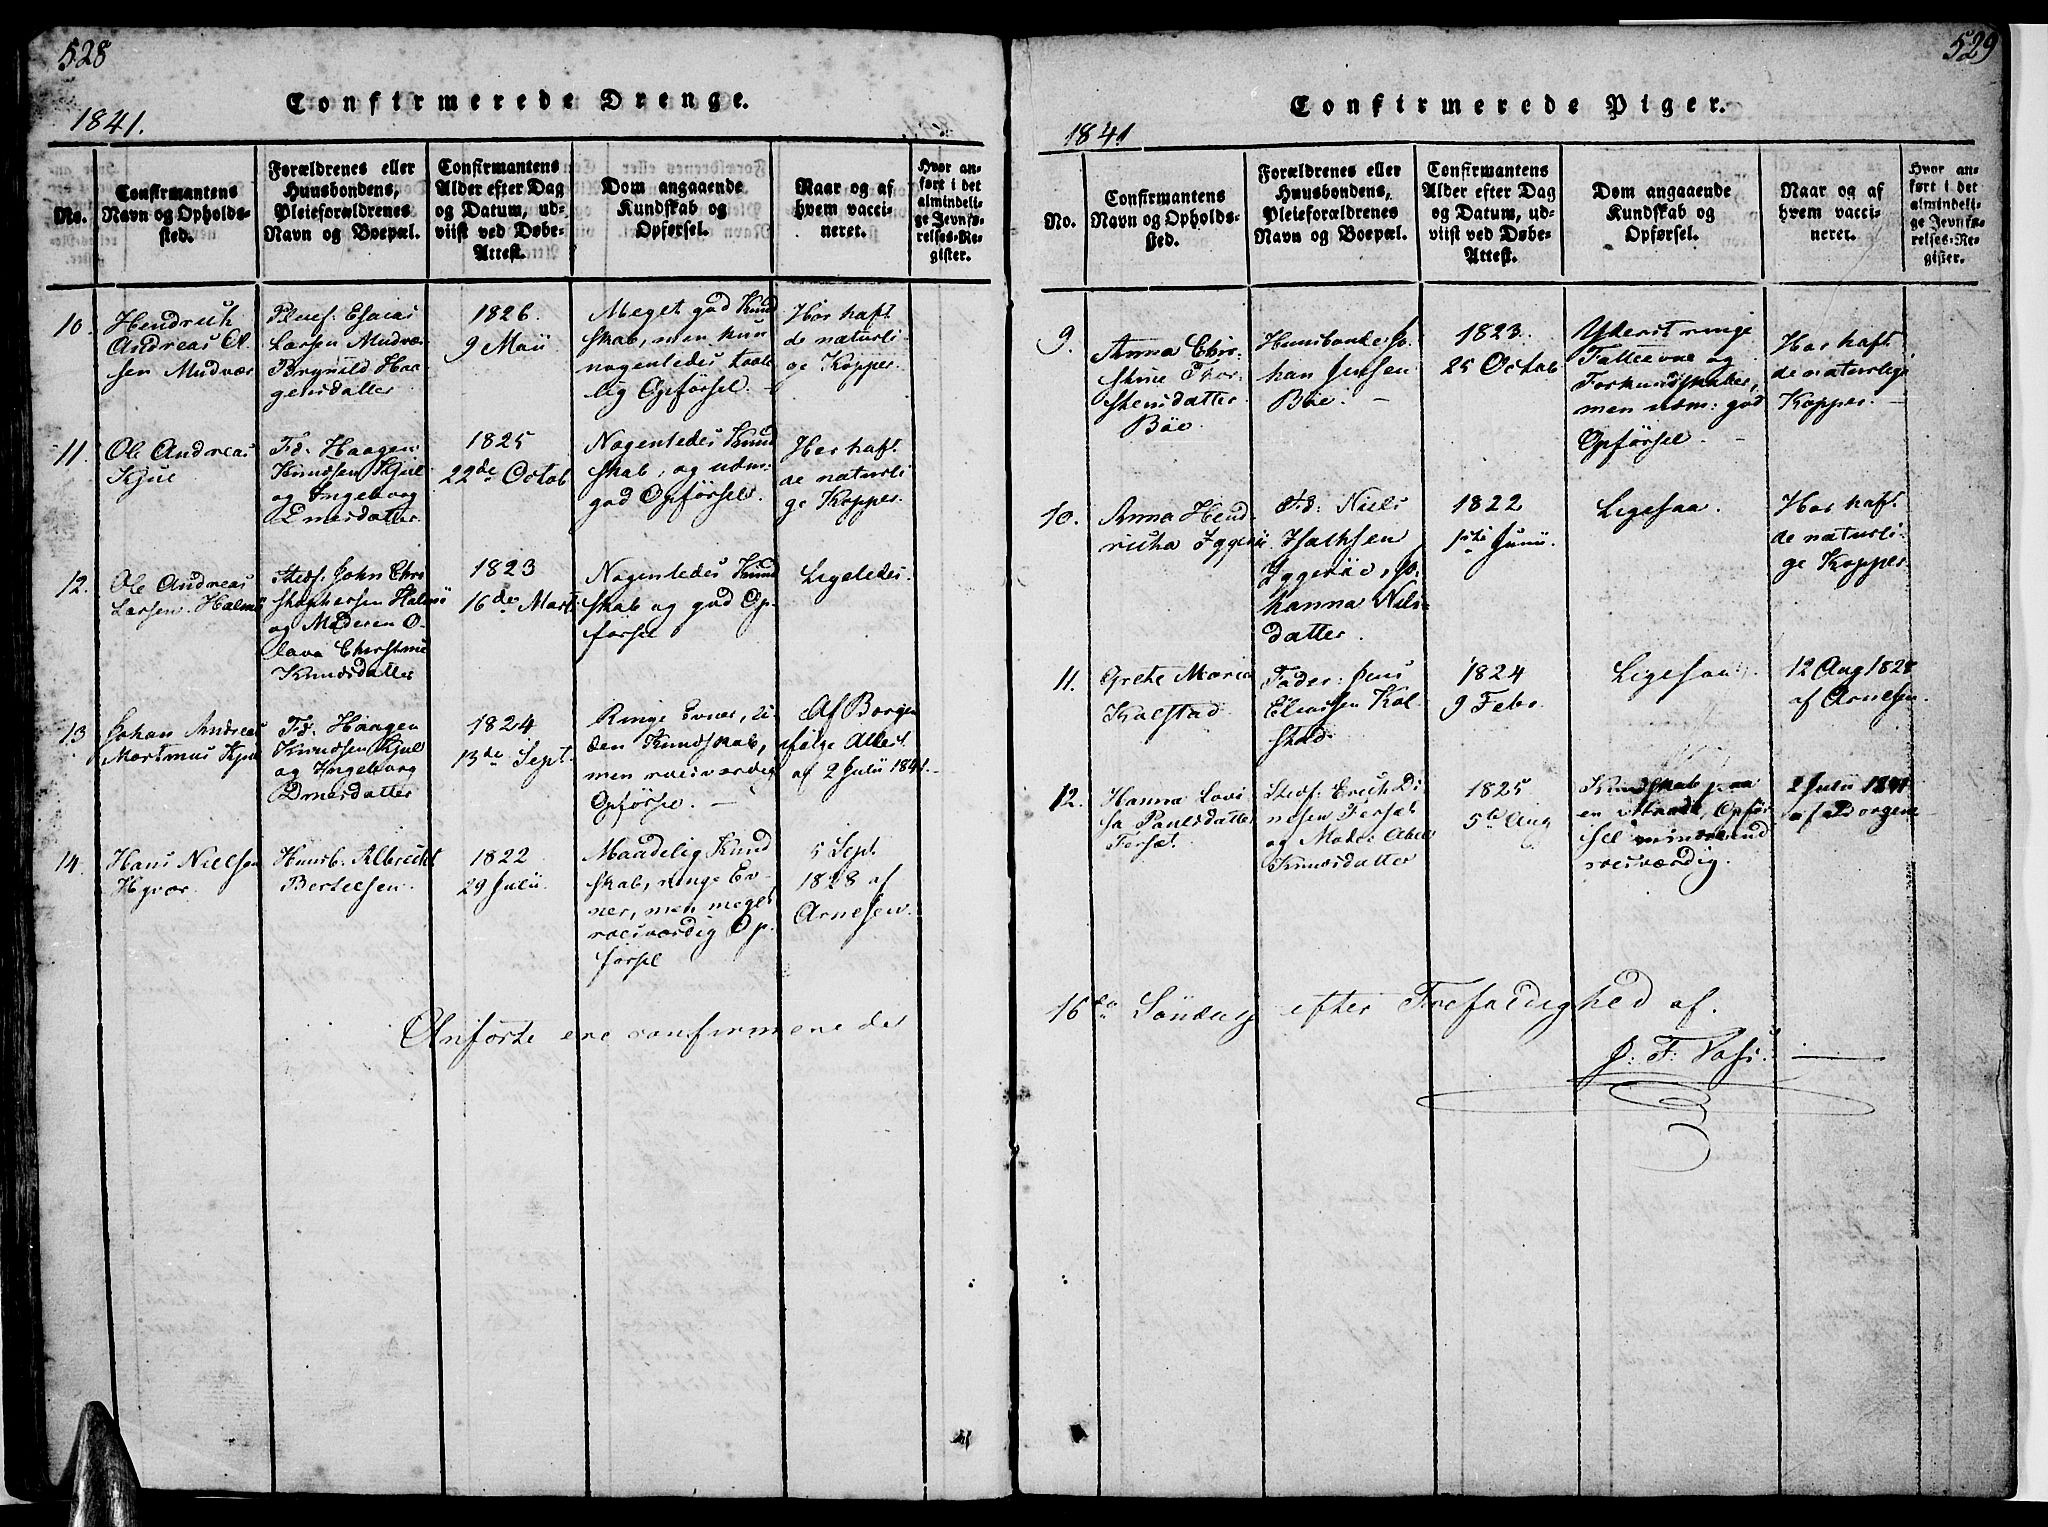 528
Confirmerede Drenge.
1841.
No.
Confirmantens
Navn og Opholds-
sted.
Forældrenes eller
Huusbondens,
Pleieforældrenes
Navn og Boepæl.
Confirmantens
Alder efter Dag
og Datum, ud-
viist ved Døbe-
Attest.
Dom angaaende
Kundskab og
Opførsel.
Naar og af
hvem vacci-
neret.
Hvor an-
ført i det
almindeli-
ge Jevnfø-
relses-Re-
gister.
10.
Hendrich
Andreas Ol
sen Mudvær
Pleief. Esaias
Larsen Mudvær
Brynild Haa
gensdatter
1826.
9 Maii
Meget god Kund
skab, men kun
nogenledes taale
lig Opførsel. -
Har haft
de naturli
ge Kopper.
11.
Ole Andreas
Kjul
Fd: Haagen
Knudsen Kjul
og Ingeborg
Elmersdatter
1825
22de Octob
Nogenledes Kund
skab, og udm:
god Opførsel.
Har haft
de naturli
ge Kopper.
12.
Ole Andreas
Larsen
Stedf. John Chri
stophersen
og Moderen O-
lava Christine
Knudsdatter
1823
16de Mart
Nogenledes Kund
skab og god Op-
førsel
Ligeledes.
13
Johan Andreas
Mortinus Kjul
Fd. Haagen
Knudsen Kjul
og Ingeborg
Elmersdatter
1824
13de Sept.
Ringe Evner, li
den Kundskab,
men roesværdig
Opførsel. -
Af Borgen
ifølge Attest
af 2 Julii 1841.
14.
Hans Nielsen
Hysvær.
Huusb. Albrecht
Bertelsen.
1822
29 Julii.
Maadelig Kund
skab, ringe Ev-
ner, men meget
roesværdig Op-
førsel
5 Sept.
1828 af
Arnesen.
Anførte ere confirmerede
529
Confirmerede Piger.
1841
No.
Confirmantens
Navn og Opholds-
sted.
Forældrenes eller
Huusbondens,
Pleieforældrenes
Navn og Boepæl.
Confirmantens
Alder efter Dag
og Datum, ud-
viist ved Døbe-
Attest.
Dom angaaende
Kundskab og
Opførsel.
Naar og af
hvem vacci-
neret.
Hvor an-
ført i det
almindeli-
ge Jevnfø-
relses-Re-
gister.
9.
Anna Chri-
stine Thor-
stensdatter
Böe
Huusbonde Jo-
han Jensen
Böe. -
1823.
25 Octob
Yderst ringe
Fatteevne og
Forkundskaber,
men udm: god
Opførsel -
Har haft
de naturlige
Kopper. -
10.
Anna Hend-
richa
Fd: Niels
Isachsen
Jo-
hanna Niels-
datter.
1822
1ste Junii.
Ligesaa.
Har haft
de naturli-
ge Kopper
11.
Grethe Maria
Kalstad
Fader: Jens
Eliassen Kal-
stad
1824
9 Febr.
Ligesaa.
12 Aug 1828
af Arnesen
12.
Hanna Lovi
sa Paulsdatter
Forsæt
Stedf. Erich Di-
nesen Forsæt
og Moder Abel
Knudsdatter
1825
5te Aug
Kundskab paa
en Maade, Opfør
sel mindre end
roesværdig.
2 Julii 1841
af Borgen
16de Söndag efter Trefoldighed af.
J: F: Voss. -